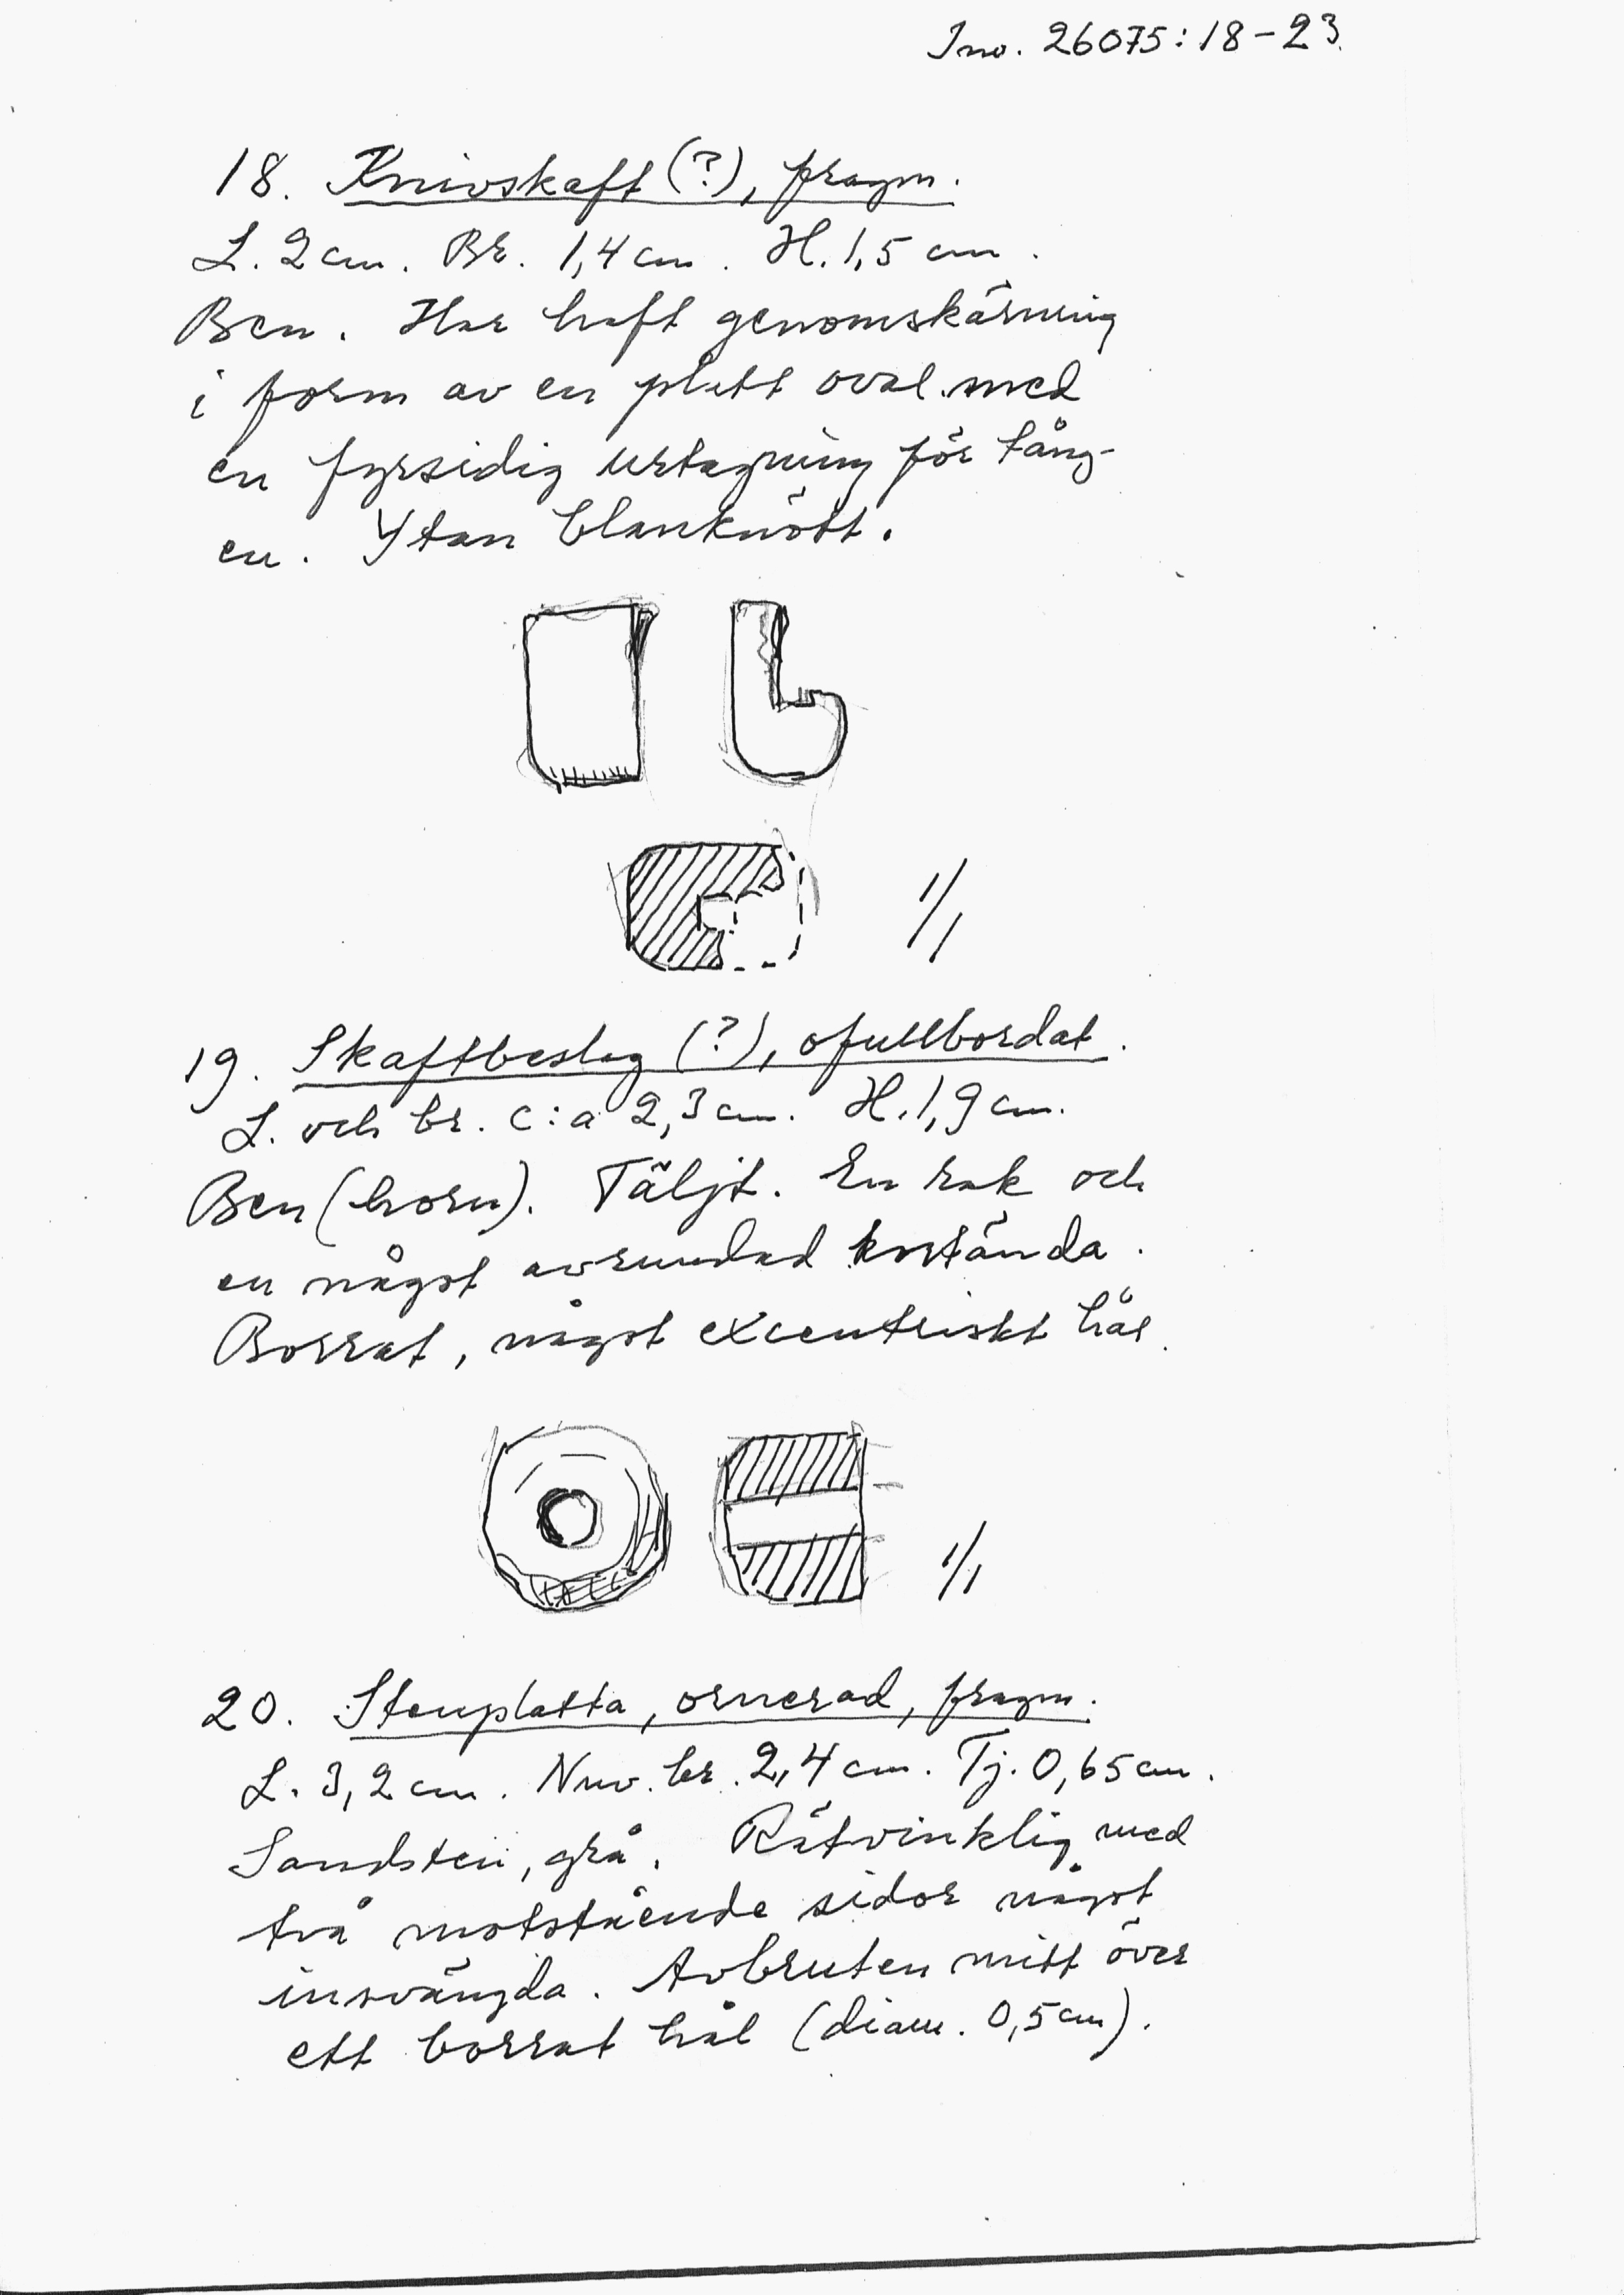 Inv. 26075:18-23.
18. Knivskaft (?), fragm.
L. 2 cm. Br. 1,4 cm. H. 1,5 cm.
Ben. Har haft genomskärning
i form av en platt oval med
en fyrsidig urtagning för tång-
en. Ytan blanknött.
1/1
19. Skaftbeslag (?), ofullbordat.
L. och br. c:a 2,3 cm. H. 1,9 cm.
Ben (horn). Täljt. En rak och
en något avrundad kortända.
Borrat, något excentriskt hål.
1/1
20. Stenplatta, ornerad, fragm.
L. 3,2 cm. Nuv. br. 2,4 cm. Tj. 0,65 cm.
Sandsten, grå. Rätvinklig med
två motstående sidor något
insvängda. Avbruten mitt över
ett borrat hål (diam. 0,5 cm).